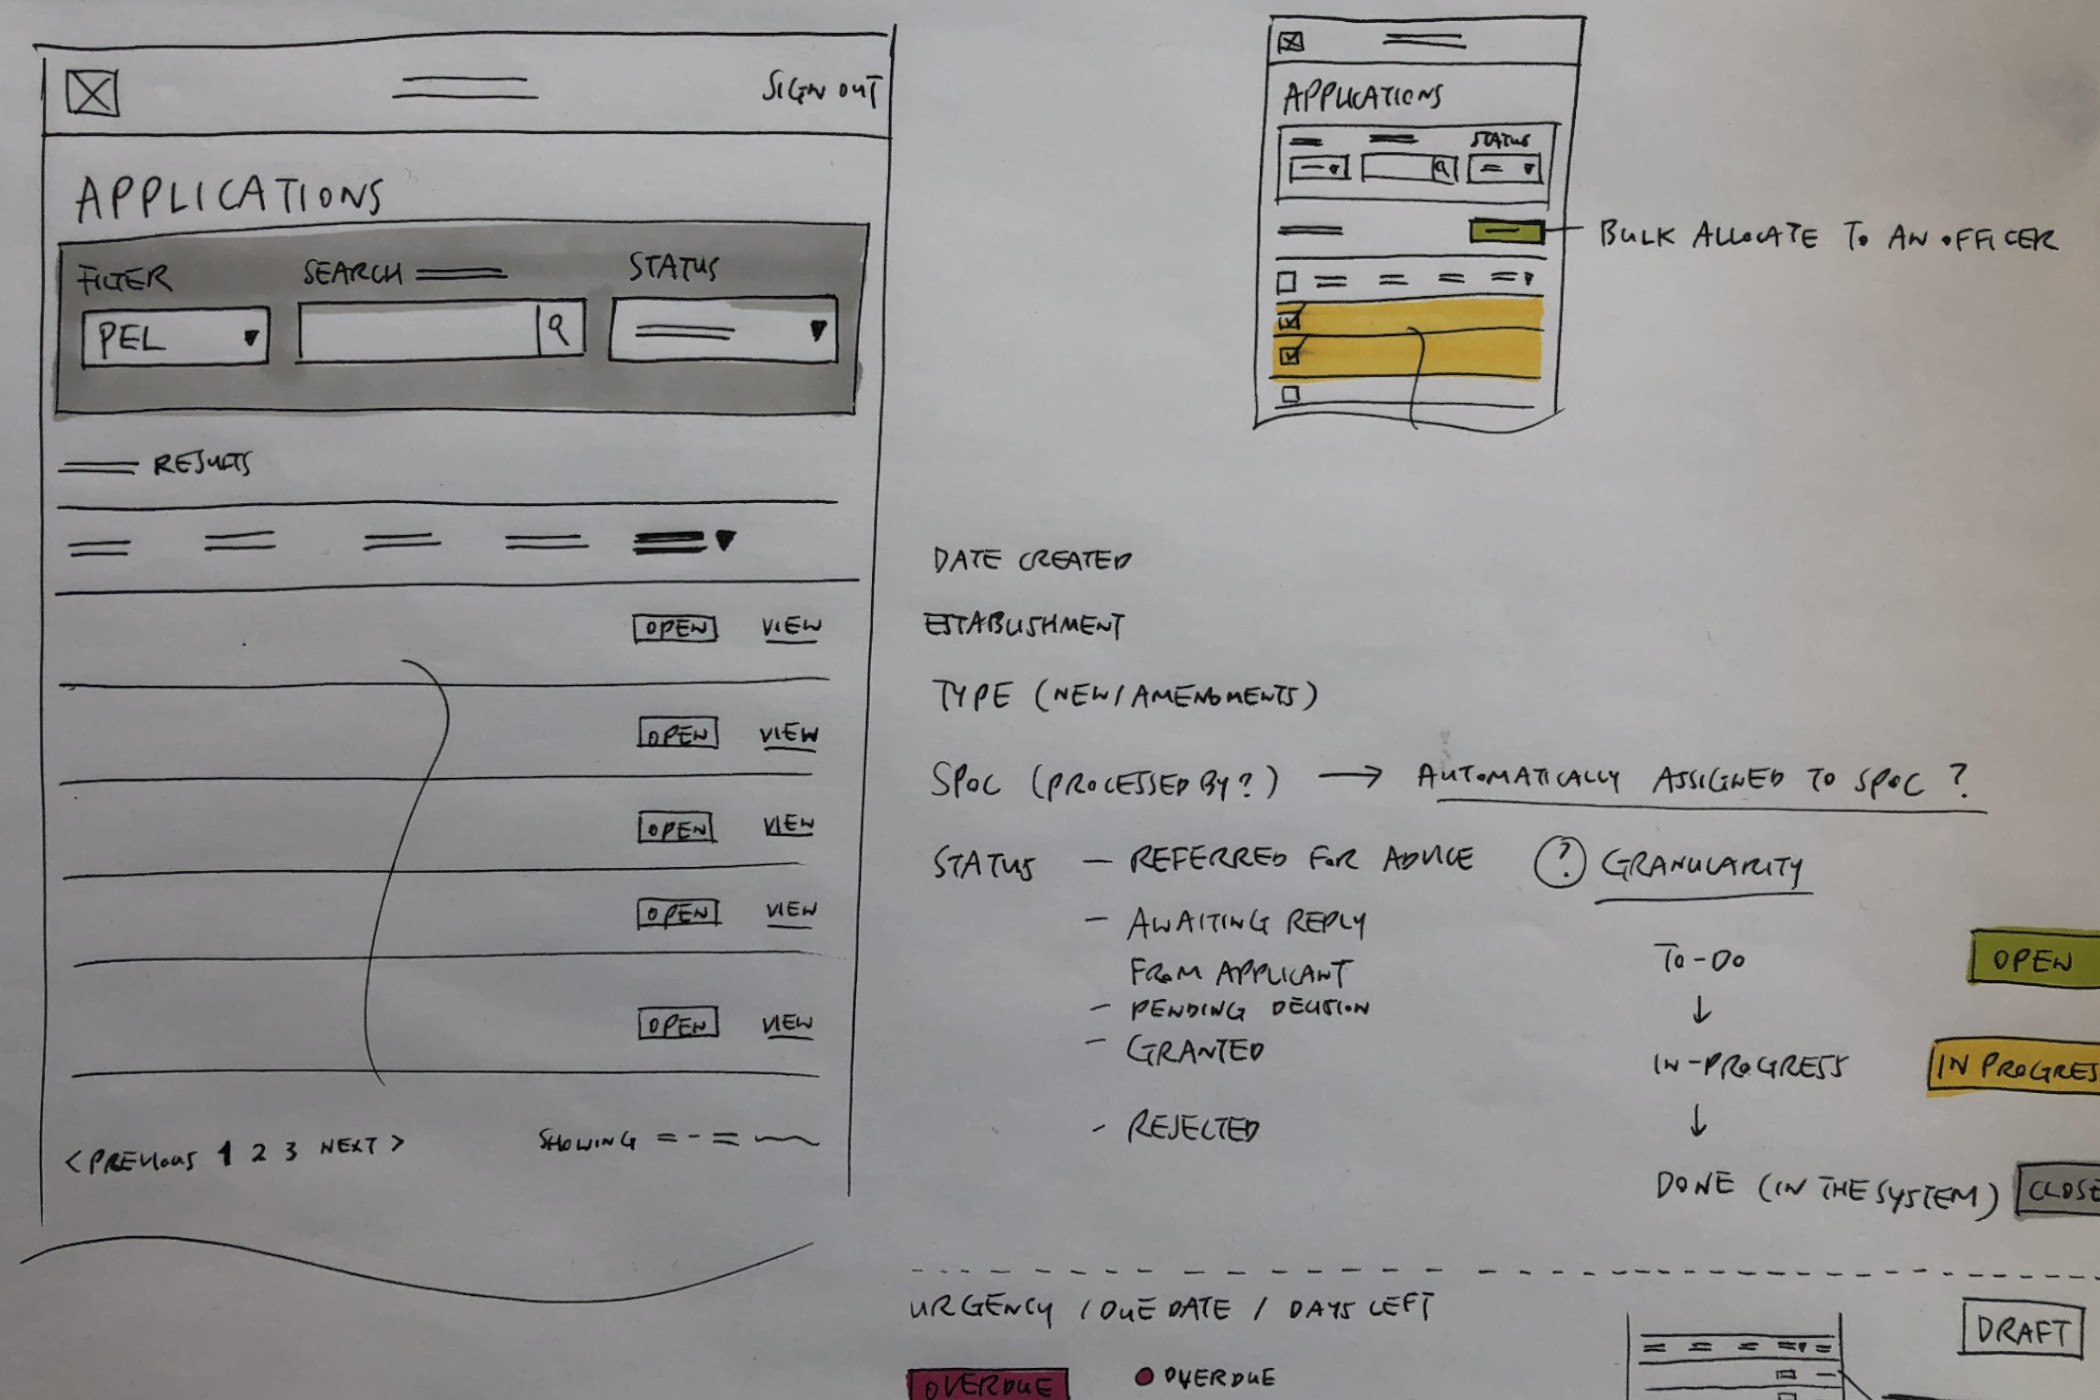 SIGN OUT
APPLICATIONS
FILTER
SEARCH
STATUS
PEL
RESULTS
OPEN VIEW
OPEN VIEW
OPEN VIEW
OPEN VIEW
OPEN VIEW
< PREVIOUS 1 2 3 NEXT >
SHOWING
APPLICATIONS
STATUS
BULK ALLOCATE TO AN OFFICER
DATE CREATED
ESTABLISHMENT
TYPE (NEW/AMENDMENTS)
SPOC (PROCESSED BY?) → AUTOMATICALLY ASSIGNED TO SPOC ?
STATUS - REFERRED FOR ADVICE
- AWAITING REPLY
FROM APPLICANT
- PENDING DECISION
- GRANTED
- REJECTED
? GRANULARITY
TO-DO
OPEN
↓
IN-PROGRESS
IN PROGRES
↓
DONE (IN THE SYSTEM)
CLOSE
URGENCY / DUE DATE / DAYS LEFT
OVERDUE
OVERDUE
DRAFT